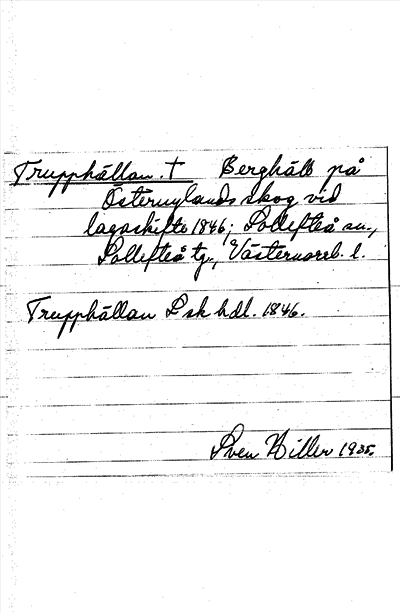 Trupphällan. † Berghäll på
Östernylands skog vid
lagaskifte 1846; Sollefteå sn.,
Sollefteå tg., Västernorrl. l.
Trupphällan L sk hdl. 1846.
Sven Hiller 1935.